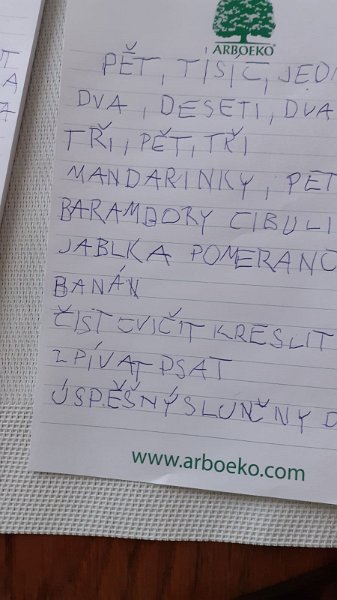 ARBOEKO®
PĚT, TÍSÍC, JEDN
DVA, DESETI, DVA
TŘI, PĚT, TŘI
MANDARINKY, PET
BARAMBORY CIBULI
JABLKA POMERANČ
BANÁN
ČÍST CVIČIT KRESLIT
ZPÍVAT PSAT
ÚSPĚŠNÝ SLUNČNY D
www.arboeko.com